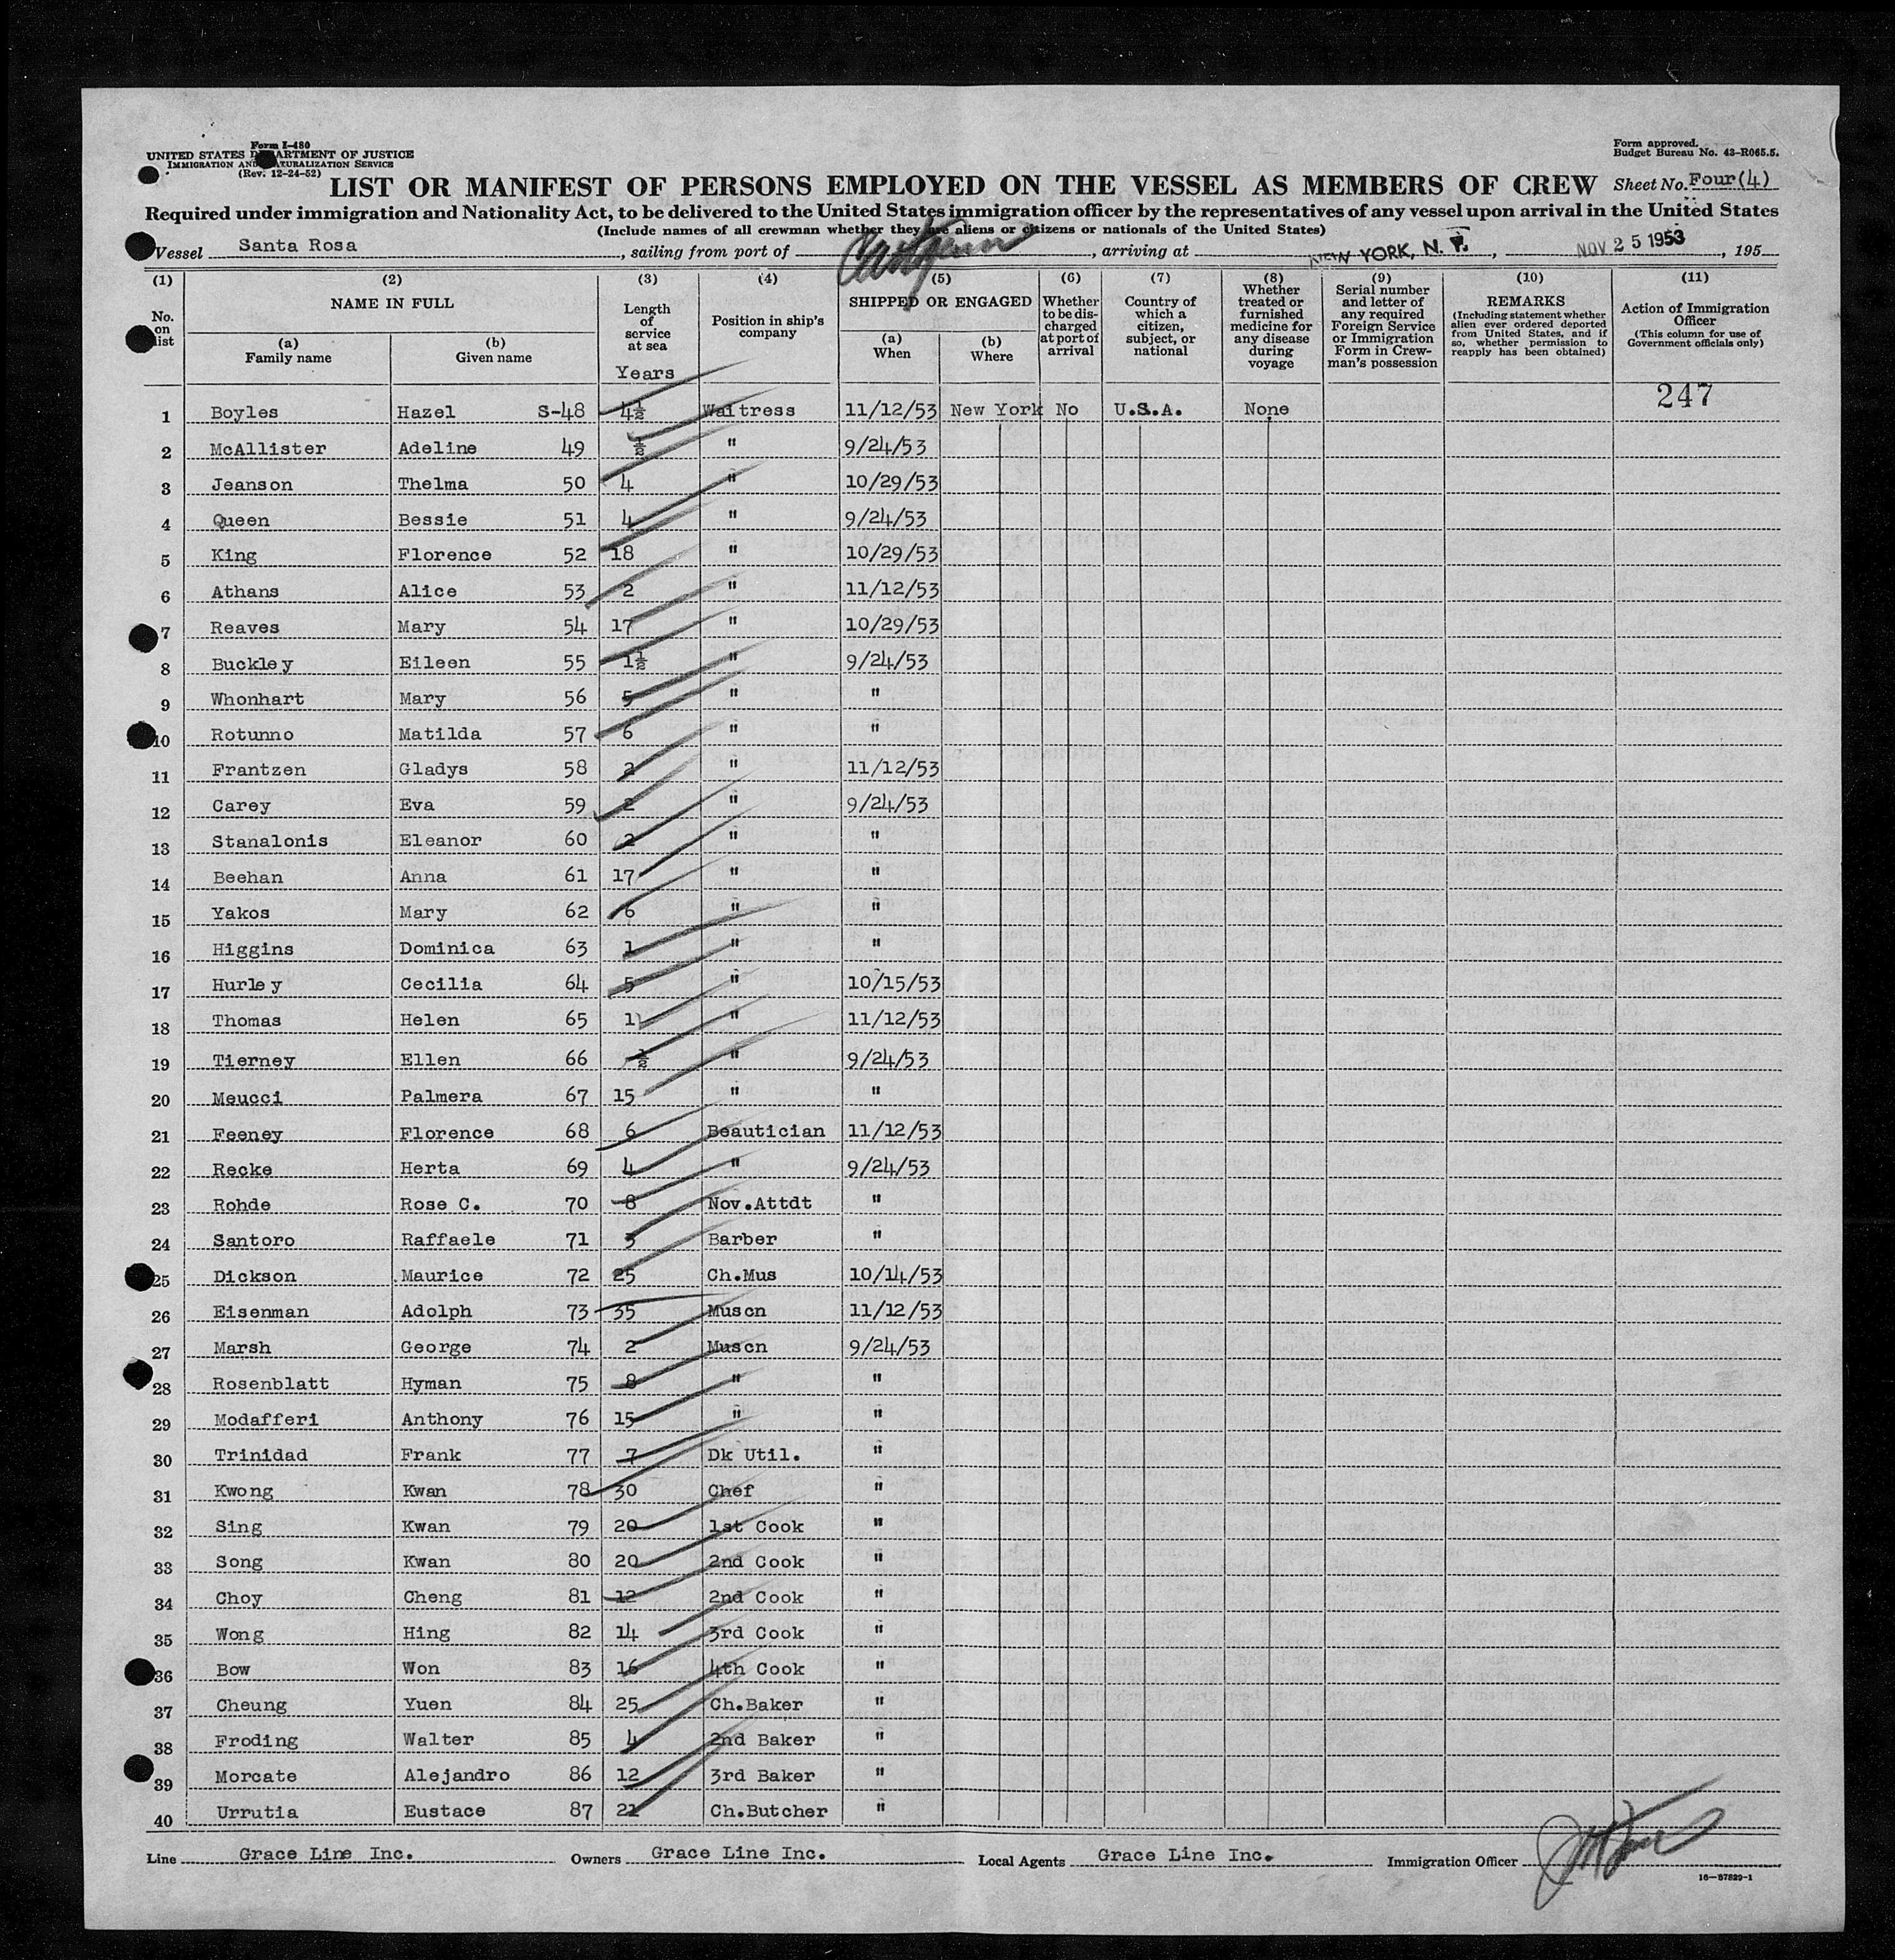 Form I-480
UNITED STATES DEPARTMENT OF JUSTICE
IMMIGRATION AND NATURALIZATION SERVICE
(Rev. 12-24-52)
Form approved.
Budget Bureau No. 43-R065.5.
LIST OR MANIFEST OF PERSONS EMPLOYED ON THE VESSEL AS MEMBERS OF CREW Sheet No. Four(4)
Required under immigration and Nationality Act, to be delivered to the United States immigration officer by the representatives of any vessel upon arrival in the United States
(Include names of all crewman whether they are aliens or citizens or nationals of the United States)
Vessel Santa Rosa, sailing from port of , arriving at NEW YORK, N. Y., NOV 25 1953, 195
(1) No. on list
(2) NAME IN FULL
(a) Family name
(b) Given name
(3) Length of service at sea
Years
(4) Position in ship's company
(5) SHIPPED OR ENGAGED
(a) When
(b) Where
(6) Whether to be discharged at port of arrival
(7) Country of which a citizen, subject, or national
(8) Whether treated or furnished medicine for any disease during voyage
(9) Serial number and letter of any required Foreign Service or Immigration Form in Crewman's possession
(10) REMARKS (Including statement whether alien ever ordered deported from United States, and if so, whether permission to reapply has been obtained)
(11) Action of Immigration Officer (This column for use of Government officials only)
247
1 Boyles Hazel S-48 4½ Waitress 11/12/53 New York No U.S.A. None
2 McAllister Adeline 49 ½ " 9/24/53
3 Jeanson Thelma 50 4 " 10/29/53
4 Queen Bessie 51 4 " 9/24/53
5 King Florence 52 18 " 10/29/53
6 Athans Alice 53 2 " 11/12/53
7 Reaves Mary 54 17 " 10/29/53
8 Buckley Eileen 55 1½ " 9/24/53
9 Whonhart Mary 56 5 " "
10 Rotunno Matilda 57 6 " "
11 Frantzen Gladys 58 2 " 11/12/53
12 Carey Eva 59 2 " 9/24/53
13 Stanalonis Eleanor 60 2 " "
14 Beehan Anna 61 17 " "
15 Yakos Mary 62 6 " "
16 Higgins Dominica 63 1 " "
17 Hurley Cecilia 64 5 " 10/15/53
18 Thomas Helen 65 1 " 11/12/53
19 Tierney Ellen 66 ½ " 9/24/53
20 Meucci Palmera 67 15 " "
21 Feeney Florence 68 6 Beautician 11/12/53
22 Recke Herta 69 4 " 9/24/53
23 Rohde Rose C. 70 8 Nov.Attdt "
24 Santoro Raffaele 71 3 Barber "
25 Dickson Maurice 72 25 Ch.Mus 10/14/53
26 Eisenman Adolph 73 35 Muscn 11/12/53
27 Marsh George 74 2 Muscn 9/24/53
28 Rosenblatt Hyman 75 8 " "
29 Modafferi Anthony 76 15 " "
30 Trinidad Frank 77 7 Dk Util. "
31 Kwong Kwan 78 30 Chef "
32 Sing Kwan 79 20 1st Cook "
33 Song Kwan 80 20 2nd Cook "
34 Choy Cheng 81 12 2nd Cook "
35 Wong Hing 82 14 3rd Cook "
36 Bow Won 83 16 4th Cook "
37 Cheung Yuen 84 25 Ch.Baker "
38 Froding Walter 85 4 2nd Baker "
39 Morcate Alejandro 86 12 3rd Baker "
40 Urrutia Eustace 87 21 Ch.Butcher "
Line Grace Line Inc. Owners Grace Line Inc. Local Agents Grace Line Inc. Immigration Officer
16—87829-1